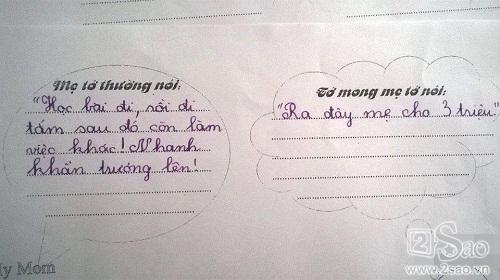 Mẹ tớ thường nói:
"Học bài đi, rồi đi
tắm sau đó còn làm
việc khác! Nhanh
khẩn trương lên!
Tớ mong mẹ tớ nói:
"Ra đây mẹ cho 3 triệu."
My Mom
2Sao
www.2sao.vn